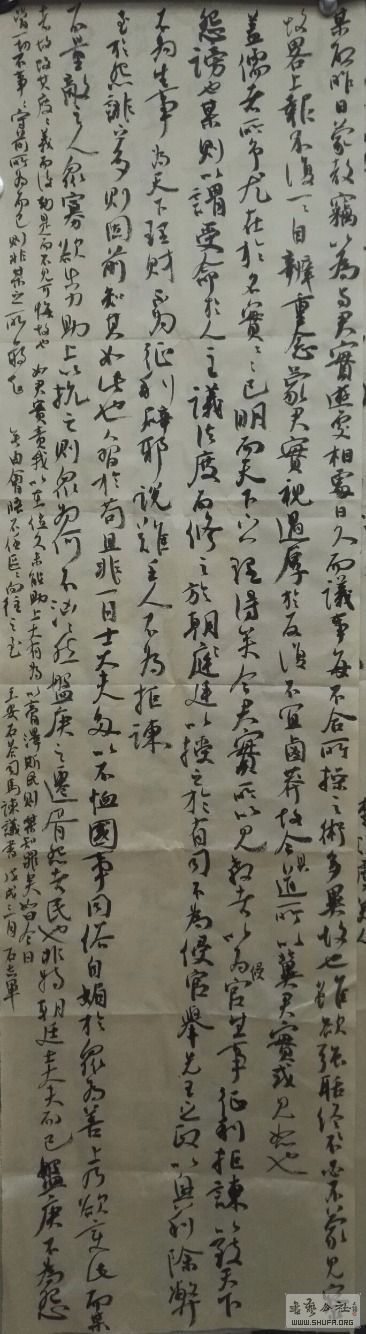 某启昨日蒙教竊以為与君實遊處相處日久而議事每不合所操之術多異故也雖欲强聒終不必蒙見
故畧上報不復一一自辨重念蒙君實視遇厚於反復不宜鹵莽故今具道所以冀君實或見恕也
蓋儒者所爭尤在於名實名實已明而天下之理得矣今君實所以見教者以為侵官生事征利拒諫以致天下
怨謗也某則以謂受命於人主議法度而修之於朝庭以授之於有司不為侵官舉先王之政以興利除弊
不為生事為天下理財不為征利辟邪說難壬人不為拒諫
至於怨誹之多則固前知其如此也人習於苟且非一日士大夫多以不恤國事同俗自媚於眾為善上乃欲變此而某
不量敵之人眾寡欲出力助上以抗之則眾為何不汹汹然盤庚之遷胥怨者民也非特朝廷士大夫而已盤庚不為怨
者故改其度度義而後動是而不見可悔故也如君實責我以在位久未能助上大有為以膏澤斯民則某知罪矣如曰今日
當一切不事事守前所為而已則非某之所敢知 無由會晤不任區區向往之至 王安石答司馬諫議書 戊戌三月
書藝公社
WWW.SHUFA.ORG